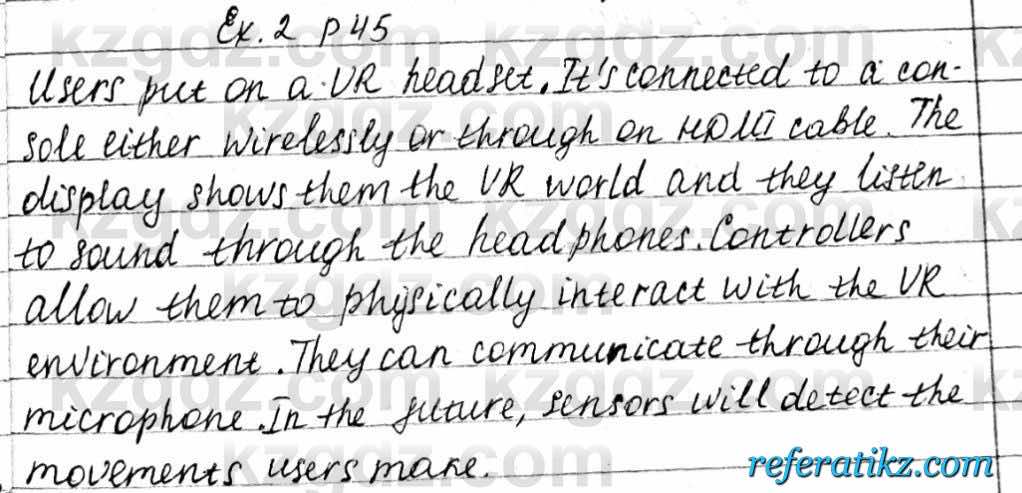 Ex. 2 p 45
Users put on a VR headset. It's connected to a con-
sole either wirelessly or through an HDMI cable. The
display shows them the VR world and they listen
to sound through the headphones. Controllers
allow them to physically interact with the VR
environment. They can communicate through their
microphone. In the future, sensors will detect the
movements users make.
referatikz.com
kzgdz.com